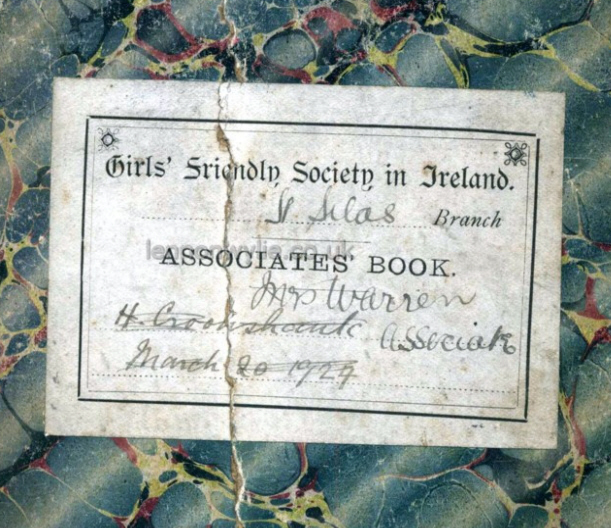 Girls' Friendly Society in Ireland.
St Silas Branch
ASSOCIATES' BOOK.
Mrs Warren
H. Crookshank Associate
March 20 1929